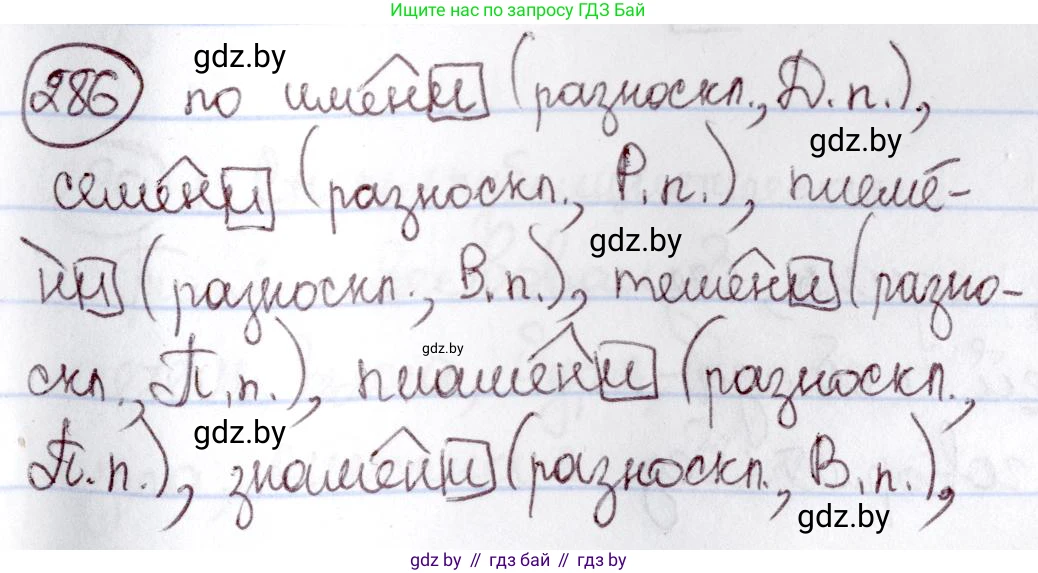 Ищите нас по запросу ГДЗ Бай
gdz.by
286 по имени (разноскл., Д.п.),
gdz.by
семени (разноскл., Р.п.), племе-
gdz.by
ни (разноскл., В.п.), темени (разно-
gdz.by
скл., П.п.), пламени (разноскл.,
gdz.by
П.п.), знамени (разноскл., В.п.),
gdz.by
gdz.by // гдз бай // гдз.by